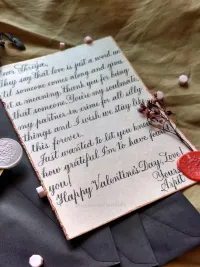 Dear Shreya,
They say that love is just a word un
til someone comes along and gives
it a meaning. thank you for being
that someone. You're my soulmate,
my partner-in-crime for all silly
things and I wish we stay like
this forever.
Just wanted to let you know
how grateful I'm to have
you!
Happy Valentine's Day, Love!
Yours,
Arpit